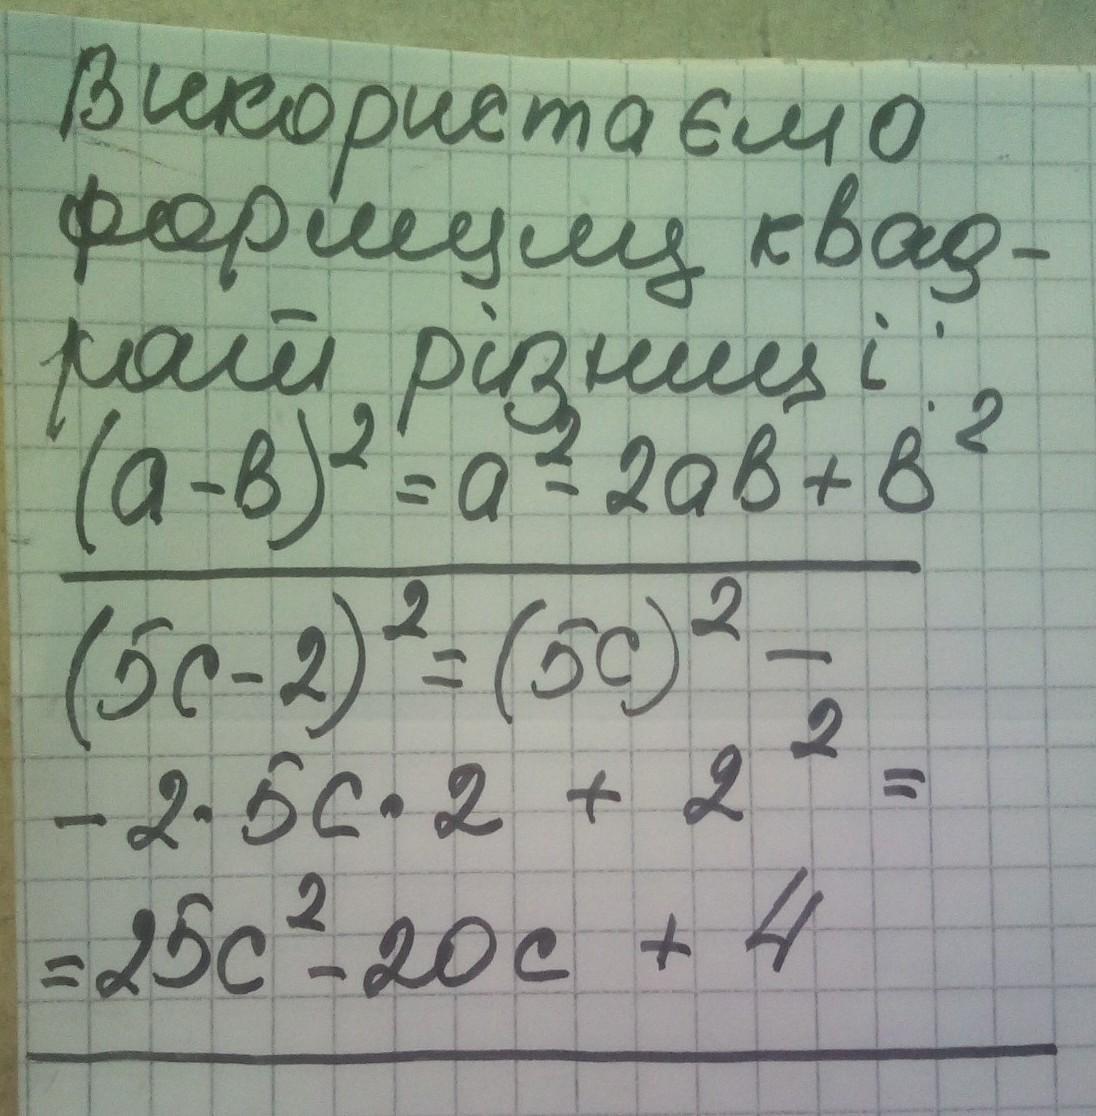 Використаємо
формулу квад-
рат різниці:
(а-в)² = а² - 2ав + в²
(5с-2)² = (5с)² −
− 2·5с·2 + 2² =
= 25с² - 20с + 4